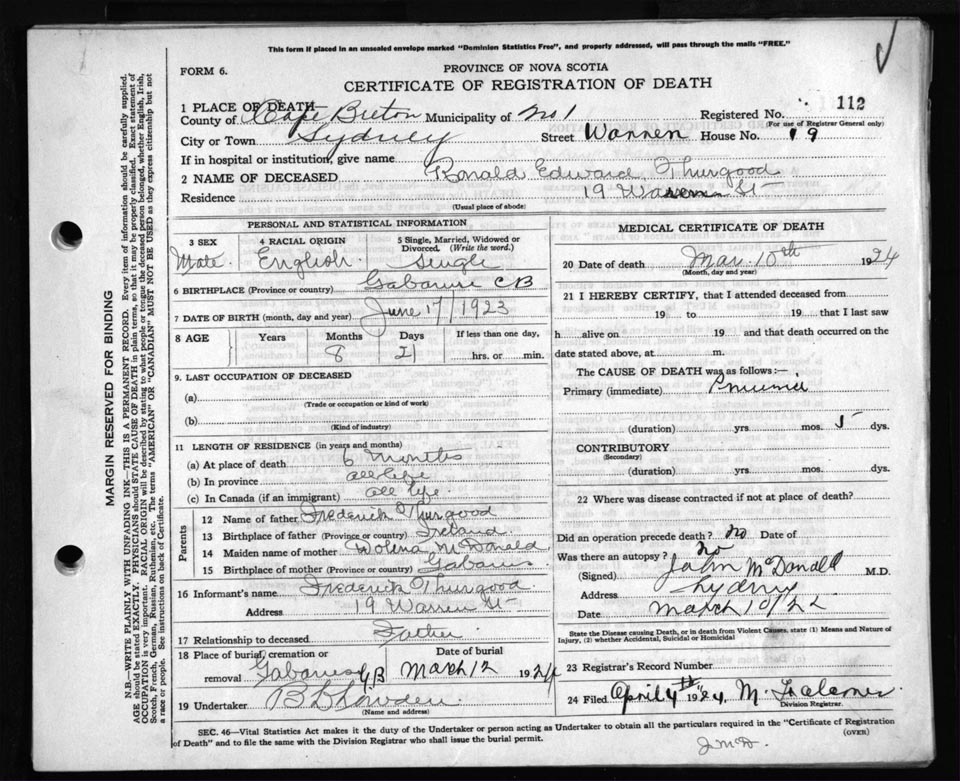 This form if placed in an unsealed envelope marked "Dominion Statistics Free", and properly addressed, will pass through the mails "FREE."
FORM 6.
PROVINCE OF NOVA SCOTIA
CERTIFICATE OF REGISTRATION OF DEATH
112
1 PLACE OF DEATH
County of Cape Breton Municipality of No 1 Registered No.
(For use of Registrar General only)
City or Town Sydney Street Warren House No. 19
If in hospital or institution, give name
2 NAME OF DECEASED Ronald Edward Thurgood
Residence 19 Warren St
(Usual place of abode)
PERSONAL AND STATISTICAL INFORMATION
3 SEX 4 RACIAL ORIGIN 5 Single, Married, Widowed or Divorced. (Write the word.)
Male. English. Single
6 BIRTHPLACE (Province or country) Gabarus CB
7 DATE OF BIRTH (month, day and year) June 17/1923
8 AGE Years Months Days If less than one day,
8 21 hrs. or min.
9. LAST OCCUPATION OF DECEASED
(a)
(Trade or occupation or kind of work)
(b)
(Kind of industry)
11 LENGTH OF RESIDENCE (in years and months)
(a) At place of death 6 Months
(b) In province all life
(c) In Canada (if an immigrant) all life.
Parents
12 Name of father Frederick Thurgood
13 Birthplace of father (Province or country) Ireland
14 Maiden name of mother McDonald
15 Birthplace of mother (Province or country) Gabarus
16 Informant's name Frederick Thurgood
Address 19 Warren St
17 Relationship to deceased Father
18 Place of burial, cremation or removal Date of burial
Gabarus C.B March 12 1924
19 Undertaker
(Name and address)
MEDICAL CERTIFICATE OF DEATH
20 Date of death Mar 10th 1924
(Month, day and year)
21 I HEREBY CERTIFY, that I attended deceased from
19 to 19 that I last saw
h alive on 19 and that death occurred on the
date stated above, at m.
The CAUSE OF DEATH was as follows:—
Primary (immediate)
(duration) yrs. mos. 5 dys.
CONTRIBUTORY
(Secondary)
(duration) yrs. mos. dys.
22 Where was disease contracted if not at place of death?
Did an operation precede death? No Date of
Was there an autopsy? No
(Signed) John McDonald M.D.
Address Sydney
Date March 10/22
State the Disease causing Death, or in death from Violent Causes, state (1) Means and Nature of Injury, (2) whether Accidental, Suicidal or Homicidal
23 Registrar's Record Number
24 Filed April 4th 1924. M.
Division Registrar.
SEC. 46—Vital Statistics Act makes it the duty of the Undertaker or person acting as Undertaker to obtain all the particulars required in the "Certificate of Registration of Death" and to file the same with the Division Registrar who shall issue the burial permit.
(OVER)
J.McD.
MARGIN RESERVED FOR BINDING
N.B.—WRITE PLAINLY WITH UNFADING INK—THIS IS A PERMANENT RECORD. Every item of information should be carefully supplied.
AGE should be stated EXACTLY. PHYSICIANS should STATE CAUSE OF DEATH in plain terms, so that it may be properly classified. Exact statement of
OCCUPATION is very important. RACIAL ORIGIN will be described by stating to what people or tongue the deceased person belonged, whether English, Irish,
Scotch, French, German, Russian, Ruthenian, etc. The terms "AMERICAN" OR "CANADIAN" MUST NOT BE USED as they express citizenship but not
a race or people. See instructions on back of Certificate.